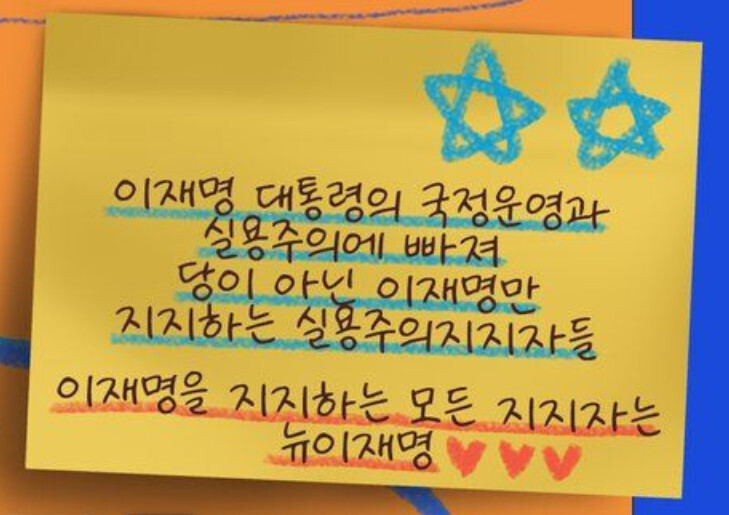 이재명 대통령의 국정운영과
실용주의에 빠져
당이 아닌 이재명만
지지하는 실용주의지지자들
이재명을 지지하는 모든 지지자는
뉴이재명